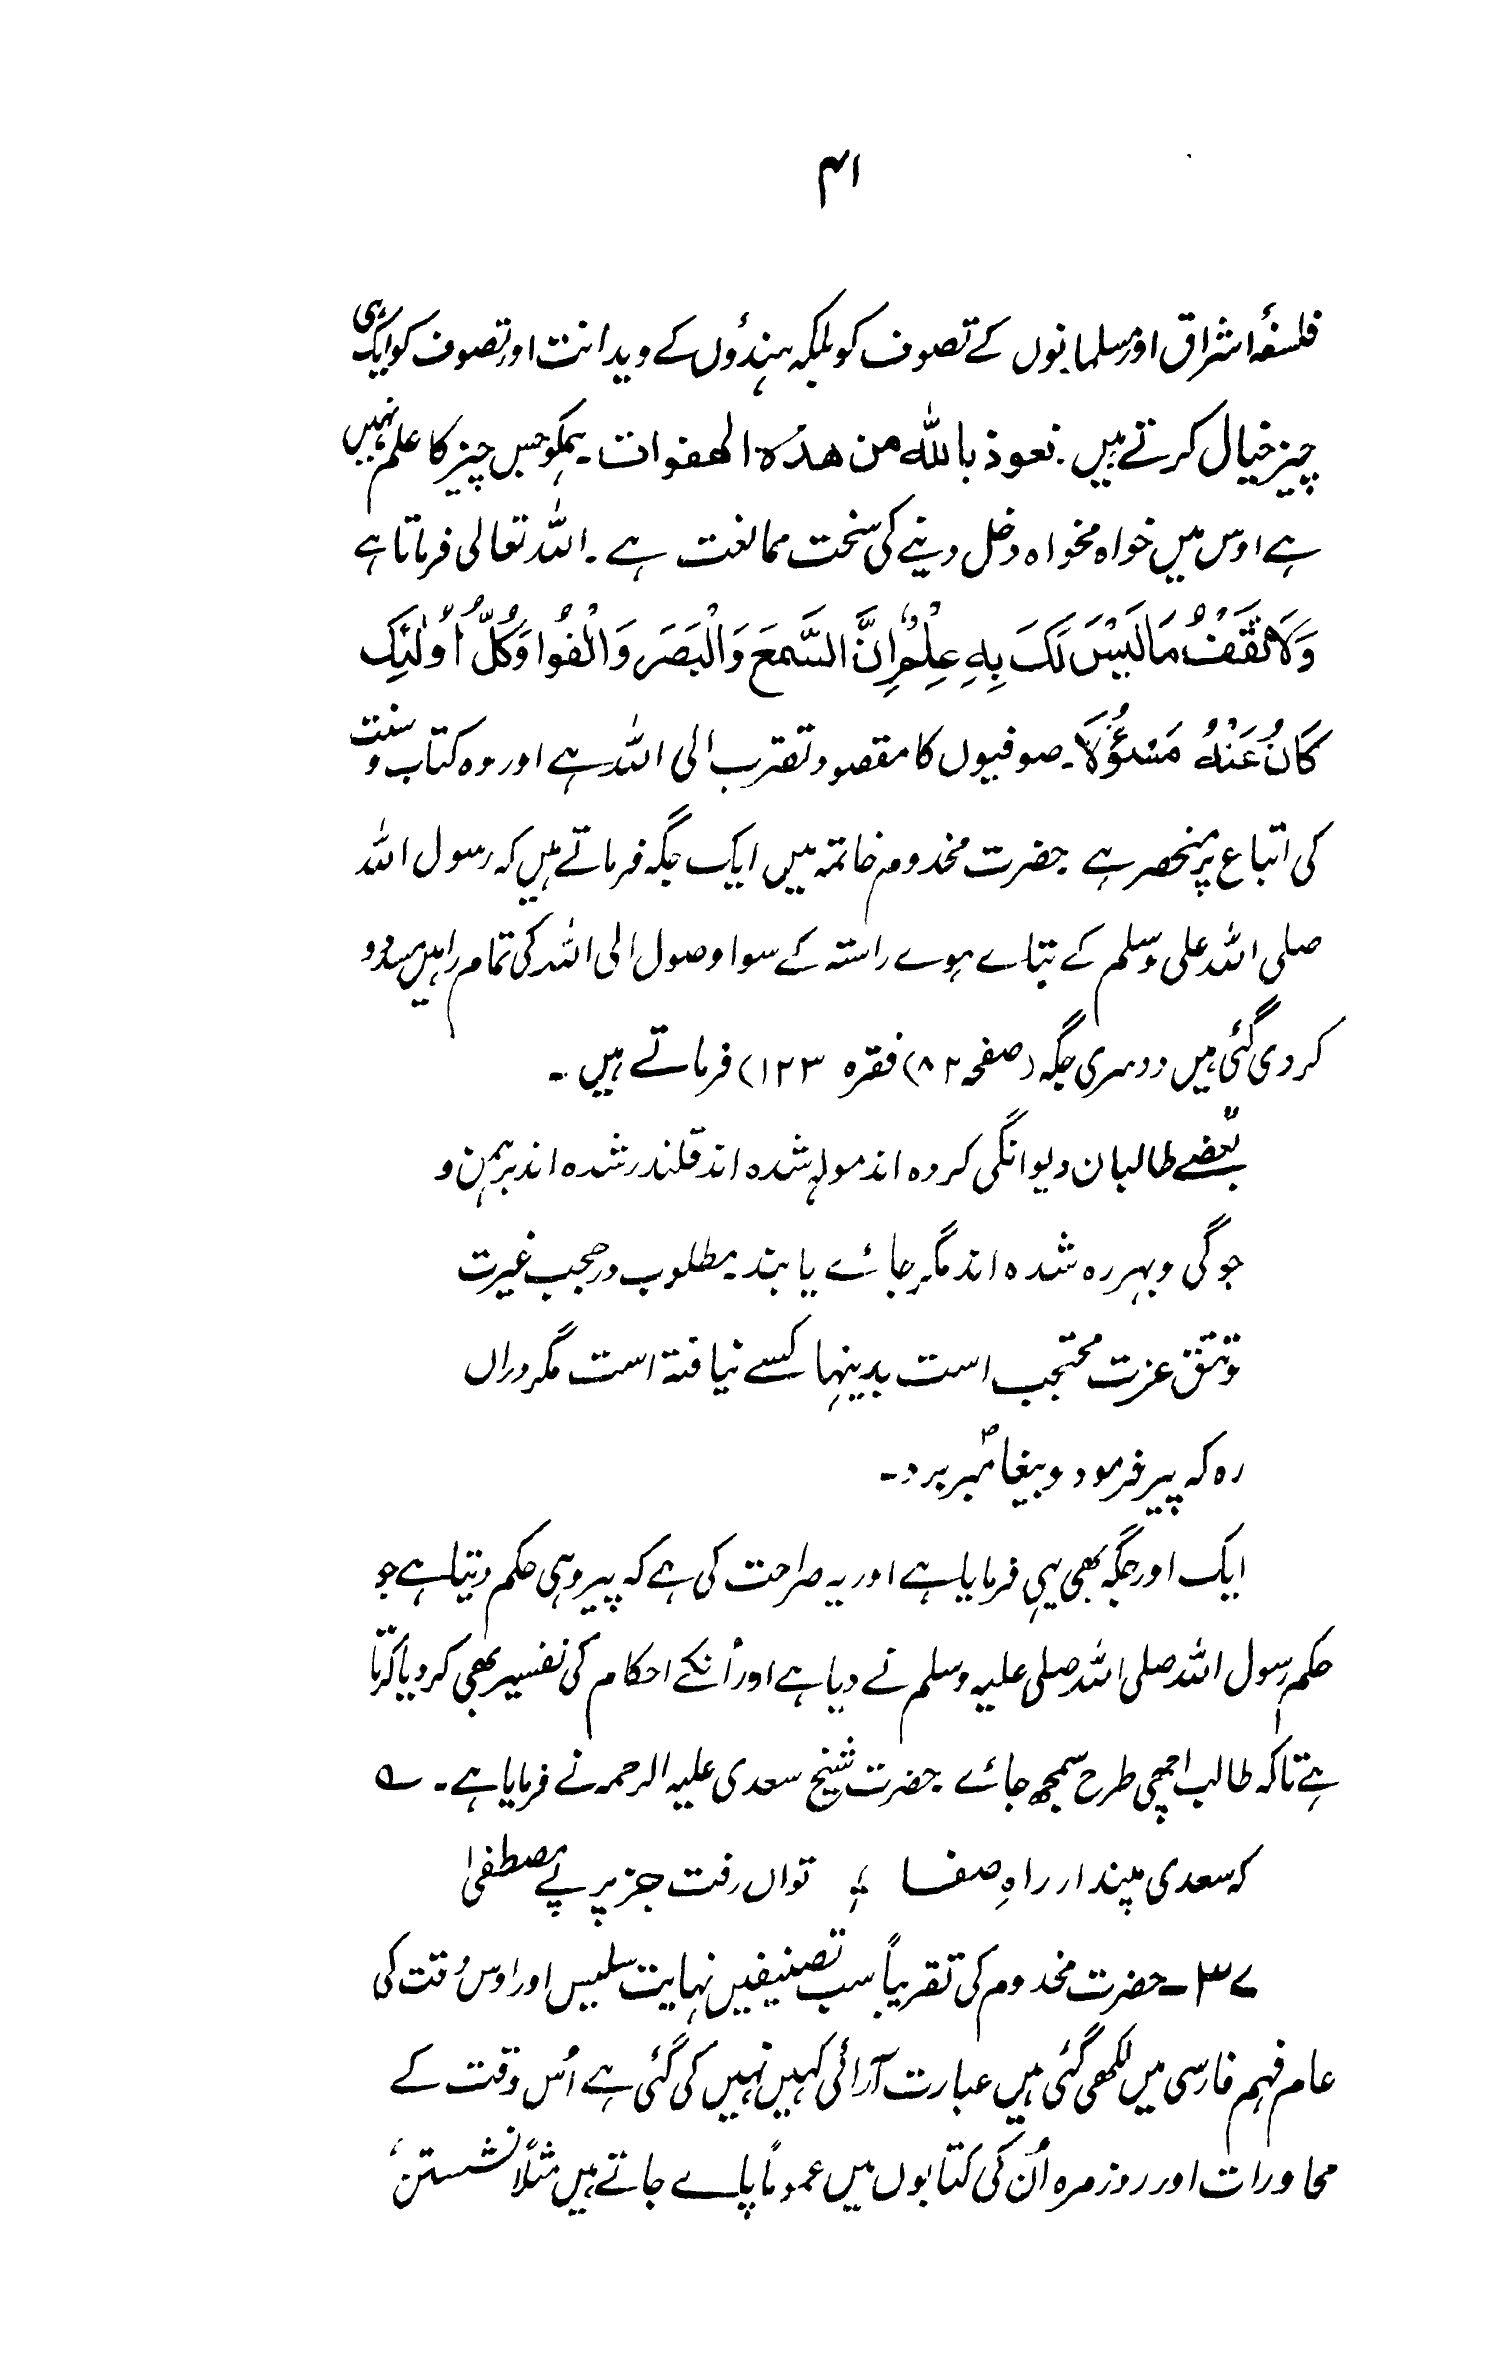 ۴۱
فلسفۂ اشراق اور مسلمانوں کے تصوف کو بلکہ ہندؤں کے ویدانت اور تصوف کو ایک ہی
چیز خیال کرتے ہیں۔ نعوذ باللہ من ھذہ الھفوات۔ ہمکو جس چیز کا علم نہیں
ہے اوس میں خواہ مخواہ دخل دینے کی سخت ممانعت ہے۔ اللہ تعالی فرماتا ہے
وَلَا تَقْفُ مَا لَیْسَ لَکَ بِهِ عِلْمٌ اِنَّ السَّمعَ وَالْبَصَرَ وَالْفُوا وَکُلُّ اُولٰئِکَ
کَانَ عَنْهُ مَسْئُوْلَا۔ صوفیوں کا مقصود تقرب الی اللہ ہے اور وہ کتاب و سنت
کی اتباع پر منحصر ہے حضرت مخدوم خاتمہ میں ایک جگہ فرماتے ہیں کہ رسول اللہ
صلی اللہ علی وسلم کے بتاے ہوے راستہ کے سوا وصول الی اللہ کی تمام راہیں مسدود
کر دی گئی ہیں دوسری جگہ (صفحہ ۸۲) فقرہ ۱۲۳) فرماتے ہیں۔
"بعضے طالبان دیوانگی کردہ اند مولہ شدہ اند قلندر شدہ اند برہمن و
جوگی و بہرہ شدہ اند مگر جائے یابند۔ مطلوب در حجب غیرت
و تتق عزت محتجب است بدینہا کسے نیافتہ است مگر دراں
رہ کہ پیر فرمود و پیغامبرؐ برد۔
ایک اور جگہ بھی یہی فرمایا ہے اور یہ صراحت کی ہے کہ پیر وہی حکم دیتا ہے جو
حکم رسول اللہ صلی اللہ صلی علیہ وسلم نے دیا ہے اور اُنکے احکام کی تفسیر بھی کر دیا کرتا
ہے تاکہ طالب اچھی طرح سمجھ جائے حضرت شیخ سعدی علیہ الرحمہ نے فرمایا ہے۔ ؎
کہ سعدی مپندار راہِ صفا ؛ تواں رفت جز بر پۓ مصطفیٰ
۳۷۔ حضرت مخدوم کی تقریباً سب تصنیفیں نہایت سلیس اور اوس وقت کی
عام فہم فارسی میں لکھی گئی ہیں عبارت آرائی کہیں نہیں کی گئی ہے اُس وقت کے
محاورات اور روزمرہ اُن کی کتابوں میں عموماً پاے جاتے ہیں مثلاً نشستن